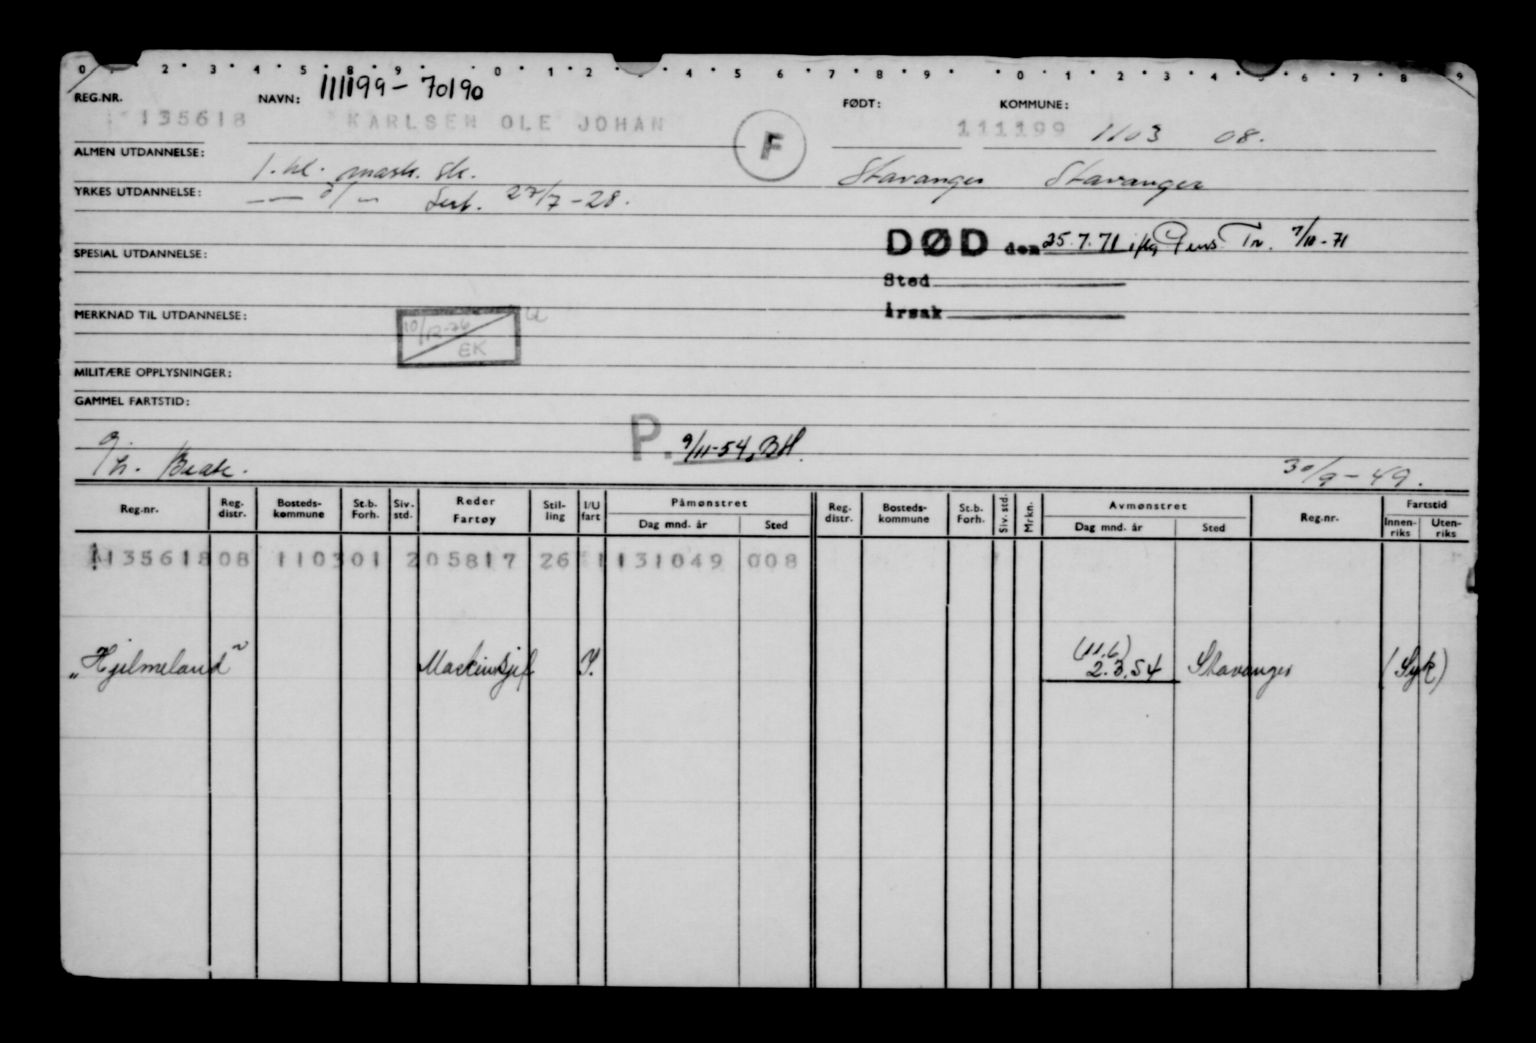 0 2 3 4 5 8 9 0 1 2 4 5 6 7 8 9 0 1 2 3 4 5 6 7 8 9
111199 - 70190
REG.NR. NAVN: FØDT: KOMMUNE:
135618 KARLSEN OLE JOHAN F 111199 1103 08.
ALMEN UTDANNELSE: 1. kl. mask. sk. Stavanger Stavanger
YRKES UTDANNELSE: Sert. 27/7-28.
DØD den 25.7.71 iflg Pens. Tr. 7/10-71
SPESIAL UTDANNELSE:
Sted
Årsak
MERKNAD TIL UTDANNELSE: 10/12-76 EK
MILITÆRE OPPLYSNINGER:
GAMMEL FARTSTID:
P. 9/11-54, BH.
30/9-49.
Reg.nr. Reg. distr. Bosteds-kommune St.b. Forh. Siv. std. Reder Fartøy Stil-ling I/U fart Påmønstret Dag mnd. år Sted Reg. distr. Bosteds-kommune St.b. Forh. Siv. std. Mrkn. Avmønstret Dag mnd. år Sted Reg.nr. Fartstid Innen-riks Uten-riks
1135618 08 1103 01 2 05817 26 1 131049 008
(11.6)
"Hjelmeland" Maskinsjef I. 2.3.54 Stavanger (Syk)